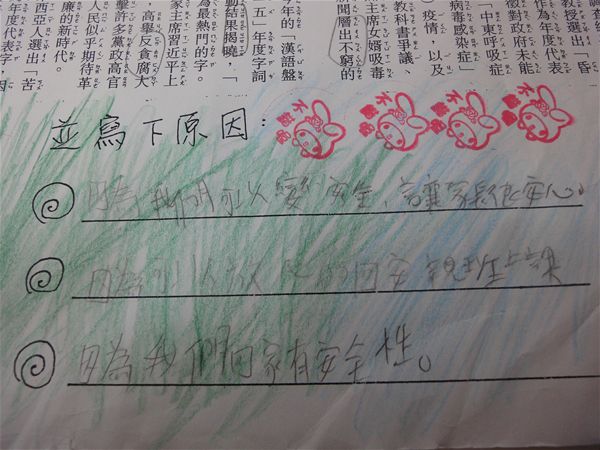 教授選出「昏
作為年度代表
徵對政府未能
「中東呼吸症
病毒感染症」
）疫情，以及
教科書爭議、
主席女婿吸毒
聞層出不窮的
年的「漢語盤
五」年度字詞
動結果揭曉，「
為最熱門的字。
家主席習近平上
，高舉反貪腐大
擊許多黨政高官
人民似乎期待革
廉的新時代。
西亞人選出「苦
年度代表字，因
並寫下原因：
因為我們可以變的安全，讓家長很安心。
因為可以放心的回安親班上課
因為我們回家有安全性。